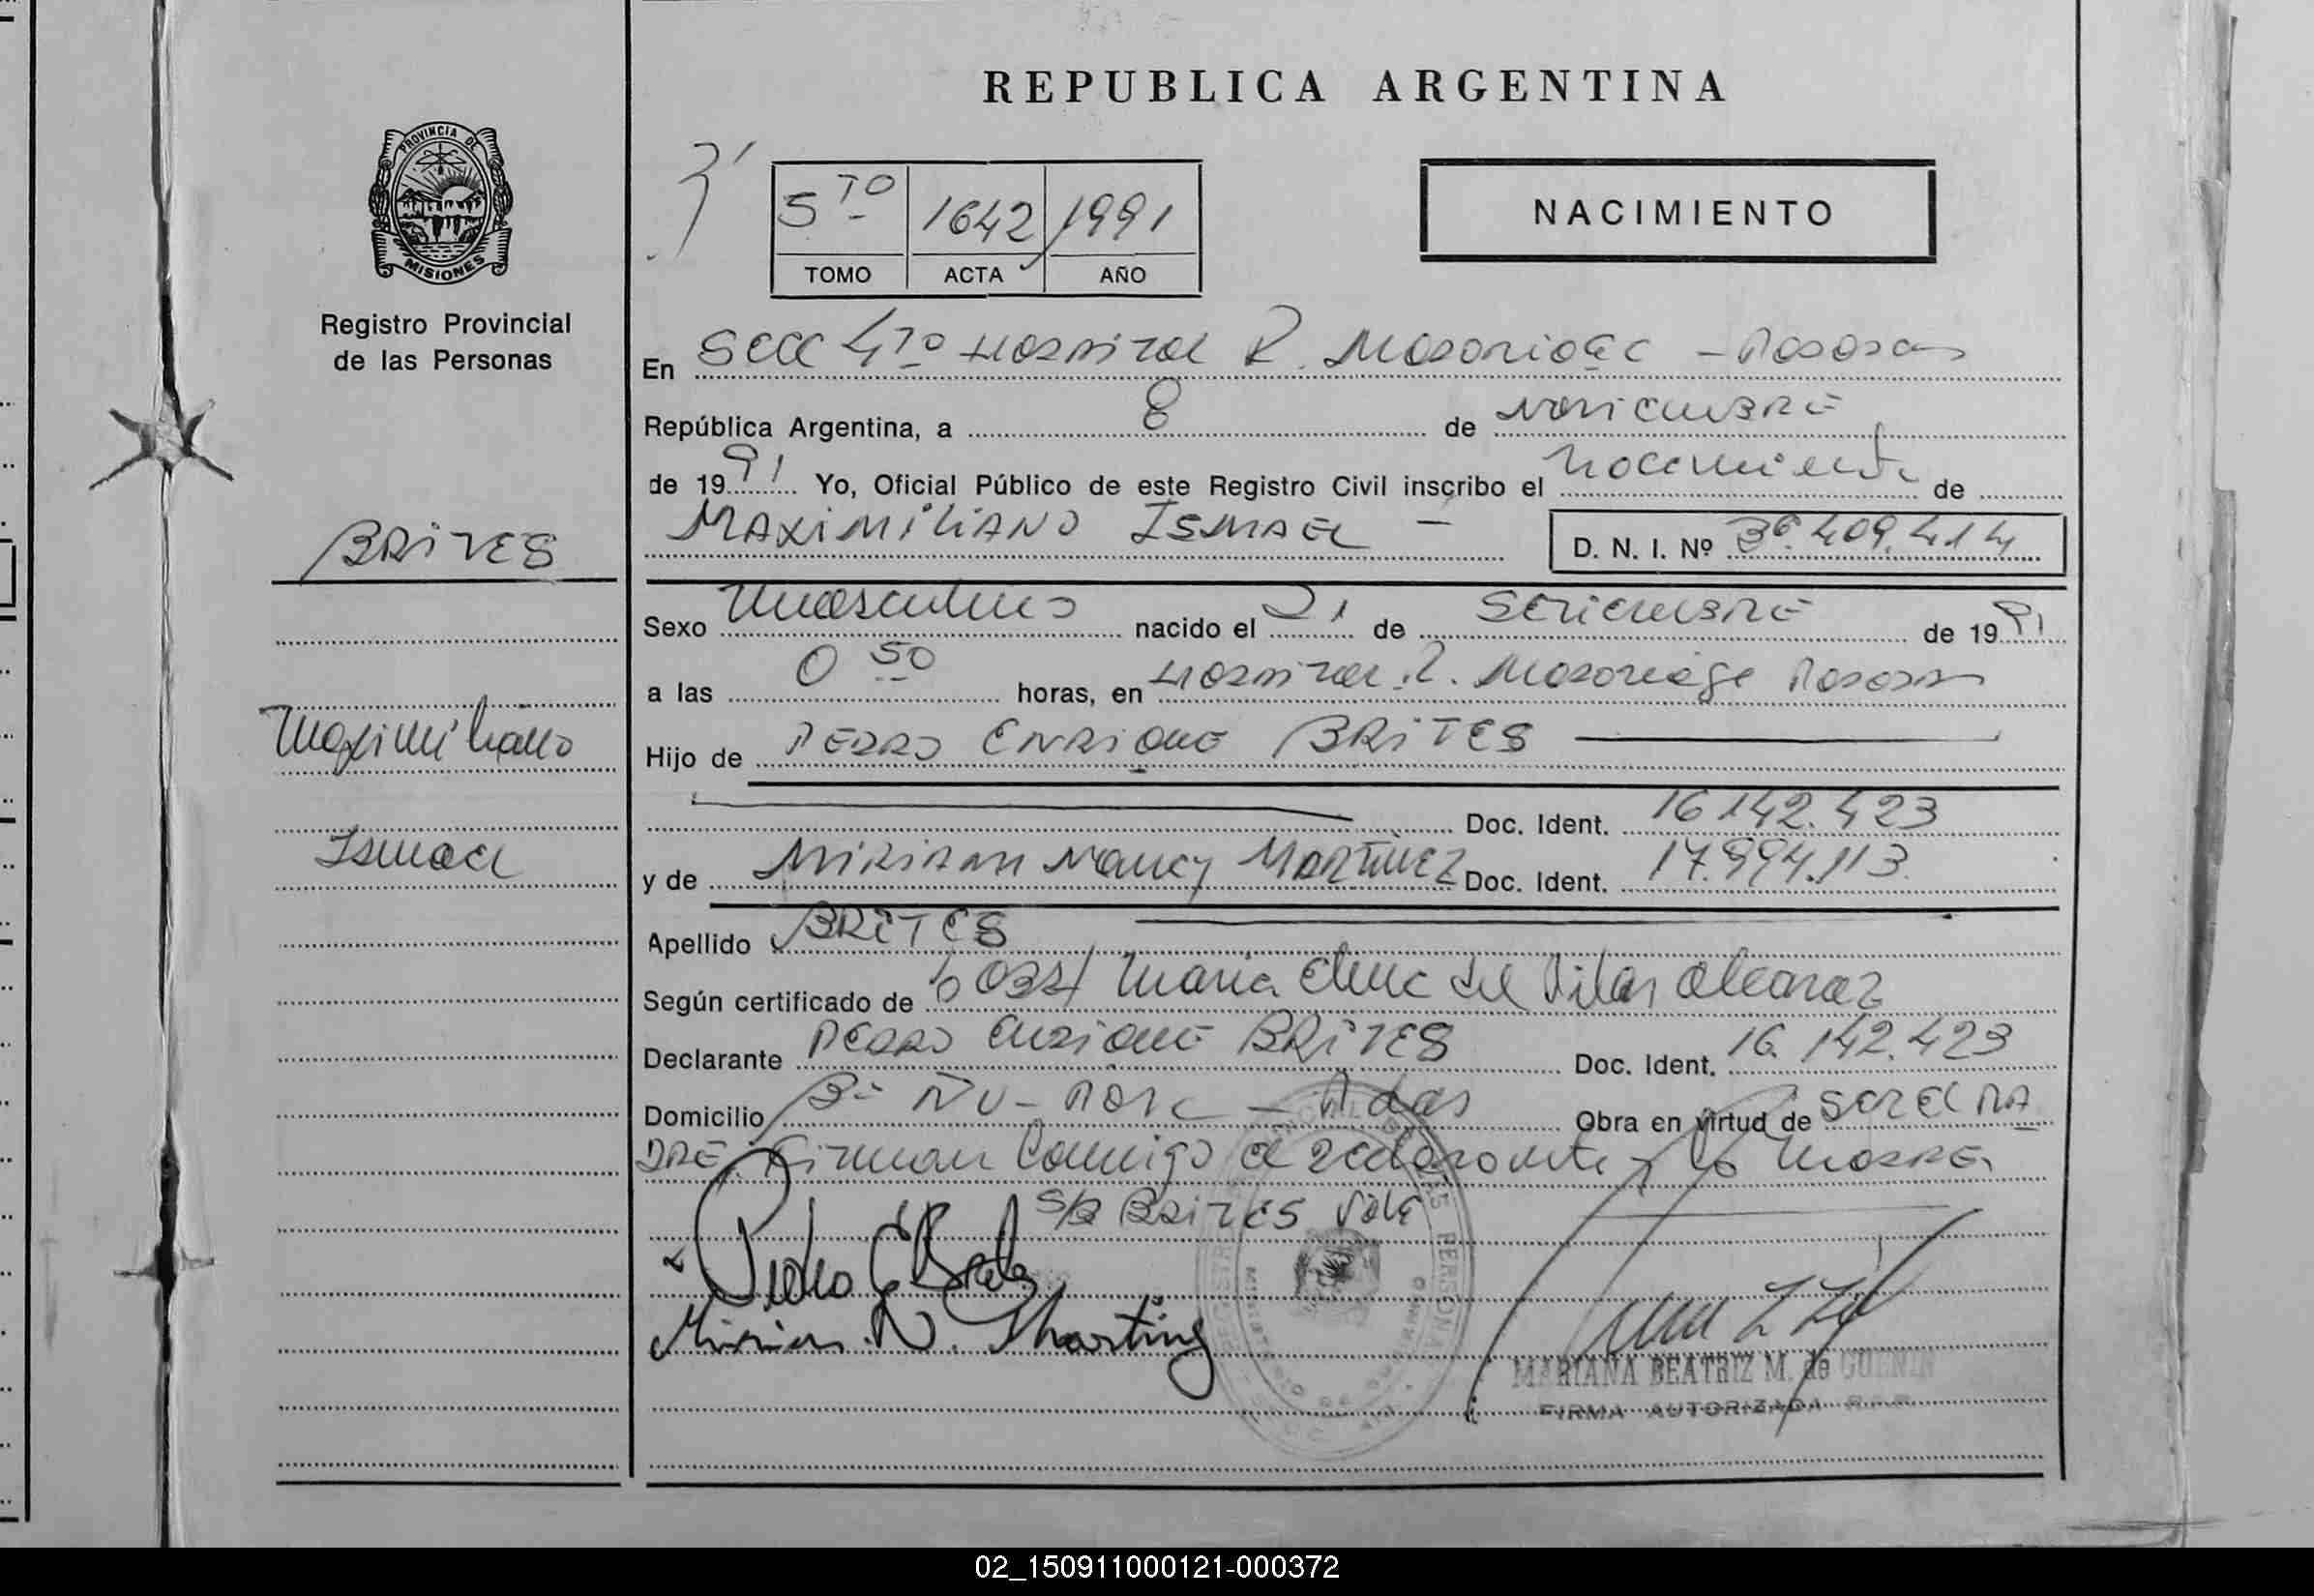 REPUBLICA ARGENTINA
PROVINCIA DE
MISIONES
Registro Provincial
de las Personas
5TO 1642 1991
TOMO ACTA AÑO
NACIMIENTO
En Secc 4to Hospital R. Madariaga - Posadas
República Argentina, a 8 de Noviembre
de 1991 Yo, Oficial Público de este Registro Civil inscribo el nacimiento de
MAXIMILIANO ISMAEL - D. N. I. Nº 36.409.414
BRITES
Maximiliano
Ismael
Sexo Masculino nacido el 21 de SETIEMBRE de 1991
a las 0 50 horas, en Hospital R. Madariaga Posadas
Hijo de PEDRO ENRIQUE BRITES
Doc. Ident. 16.142.423
y de MIRIAM Nancy MARTINEZ Doc. Ident. 17.994.113
Apellido BRITES
Según certificado de Obst María Elena del Pilar Alcaraz
Declarante PEDRO ENRIQUE BRITES Doc. Ident. 16.142.423
Domicilio Bº ÑU-PORA - Pdas Obra en virtud de SER EL PA
DRE. Firman Conmigo el declarante y la MADRE.
S/B BRITES Vale
Pedro E. Brites
Miriam N. Martinez
MARIANA BEATRIZ M. de GUENIN
FIRMA AUTORIZADA
02_150911000121-000372